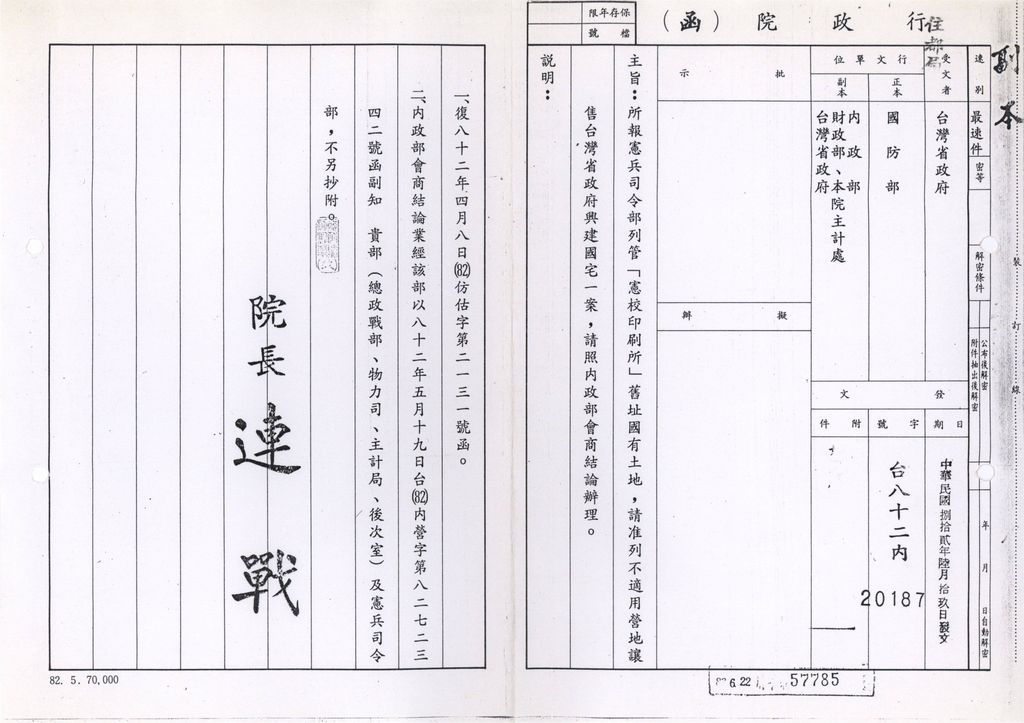 副本
行政院（函）
住都局
保存年限
檔號
速別
最速件
密等
解密條件
公布後解密
附件抽出後解密
年月日自動解密
裝訂線
受文者
台灣省政府
行文單位
正本
國防部
副本
內政部
財政部、本院主計處
台灣省政府
發文
日期
中華民國捌拾貳年陸月拾玖日發文
字號
台八十二內
20187
附件
批示
擬辦
主旨：所報憲兵司令部列管「憲校印刷所」舊址國有土地，請准列不適用營地讓
售台灣省政府興建國宅一案，請照內政部會商結論辦理。
說明：
一、復八十二年四月八日(82)仿估字第二一三一號函。
二、內政部會商結論業經該部以八十二年五月十九日台(82)內營字第八二七二三
四二號函副知　貴部（總政戰部、物力司、主計局、後次室）及憲兵司令
部，不另抄附。
院長 連戰
82. 5. 70,000
6.22
57785